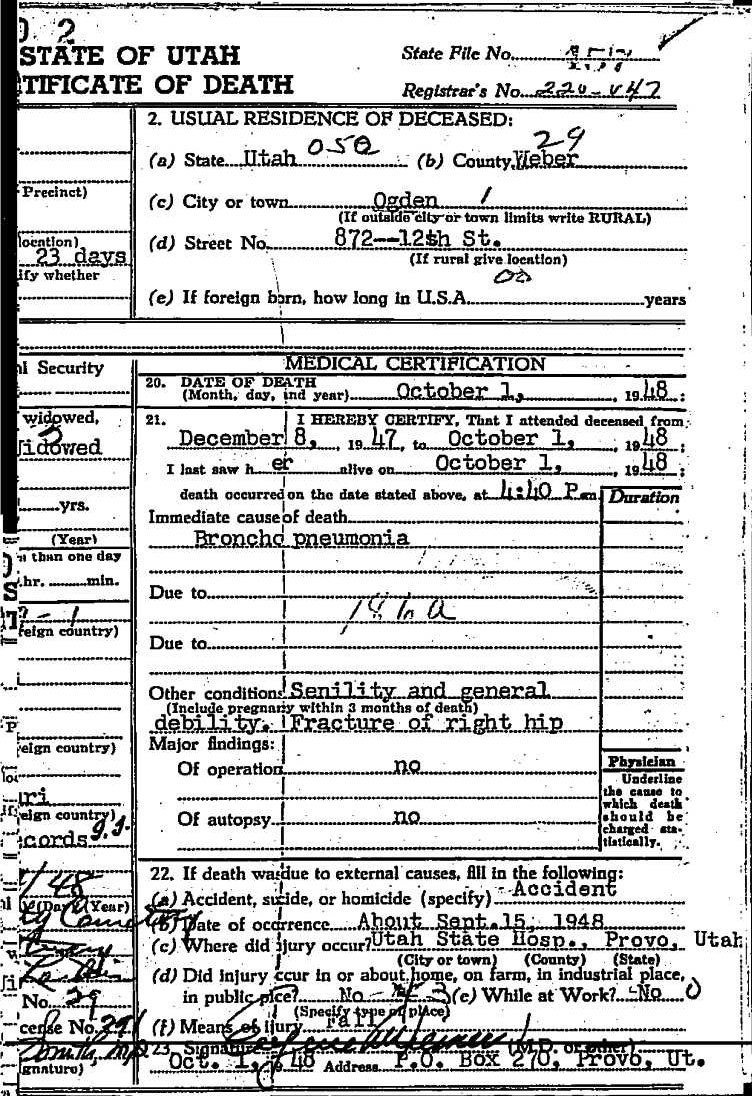 STATE OF UTAH
TIFICATE OF DEATH
State File No.
Registrar's No. 220-V47
2. USUAL RESIDENCE OF DECEASED:
(a) State Utah (b) County Weber 29
Precinct)
(c) City or town Ogden 1
(If outside city or town limits write RURAL)
location)
23 days
(d) Street No. 872--12th St.
(If rural give location)
ify whether
(e) If foreign born, how long in U.S.A. years
MEDICAL CERTIFICATION
al Security
20. DATE OF DEATH
(Month, day, and year) October 1, 1948;
widowed,
Widowed
21. I HEREBY CERTIFY, That I attended deceased from
December 8, 1947, to October 1, 1948
I last saw her alive on October 1, 1948;
yrs.
death occurred on the date stated above, at 4:40 P.m. Duration
Immediate cause of death
(Year)
Broncho pneumonia
than one day
hr. min.
Due to
186a
reign country)
Due to
Other conditions Senility and general
(Include pregnancy within 3 months of death)
debility. Fracture of right hip
eign country)
Major findings:
Of operation no
Physician
Underline
the cause to
which death
should be
charged sta-
tistically.
uri
eign country)
Of autopsy no
cords
22. If death was due to external causes, fill in the following:
(a) Accident, suicide, or homicide (specify) Accident
48
(Day) (Year)
(b) Date of occrrence About Sept. 15, 1948
(c) Where did ijury occur? Utah State Hosp., Provo, Utah
(City or town) (County) (State)
(d) Did injury ccur in or about home, on farm, in industrial place,
in public plce? No (e) While at Work? No
(Specify type of place)
No. 29
cense No. 291
(f) Means of ijury Fall
23. Signature (M.D. or other)
Smith, MD
gnature)
Oct. 1, 48 Address P.O. Box 270, Provo, Ut.